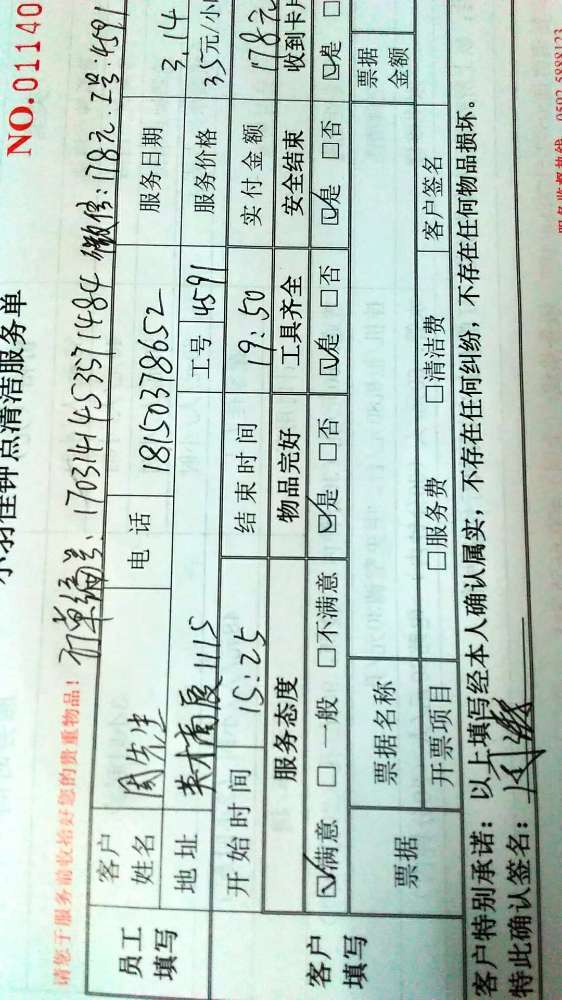 NO.01140
钟点清洁服务单
请您于服务前收拾好您的贵重物品!
订单编号:1703141453571484 微信:178元.工号:4591
员工填写
客户姓名 周先生 电话 18150378652 服务日期 3.14
地址 1115 工号 4591 服务价格 35元/小
开始时间 15:25 结束时间 19:50 实付金额 178元
客户填写
服务态度 物品完好 工具齐全 安全结束 收到卡片
☑满意 □一般 □不满意 ☑是 □否 ☑是 □否 ☑是 □否 ☑是 □
票据 票据名称 票据金额
开票项目 □服务费 □清洁费 客户签名
客户特别承诺:以上填写经本人确认属实,不存在任何纠纷,不存在任何物品损坏。
特此确认签名:
0592-5888123